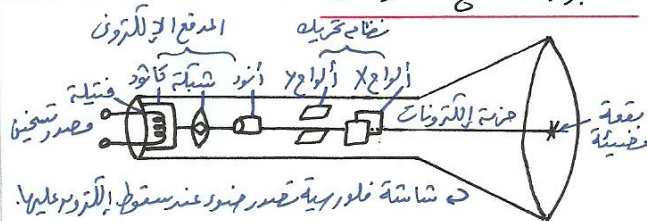 المدفع الإلكترونى
نظام تحريك
فتيلة
كاثود
شبكة
أنود
ألواح Y
ألواح X
حزمة إلكترونات
بقعة مضيئة
مصدر تسخين
شاشة فلورسية تصدر ضوء عند سقوط إلكترون عليها.